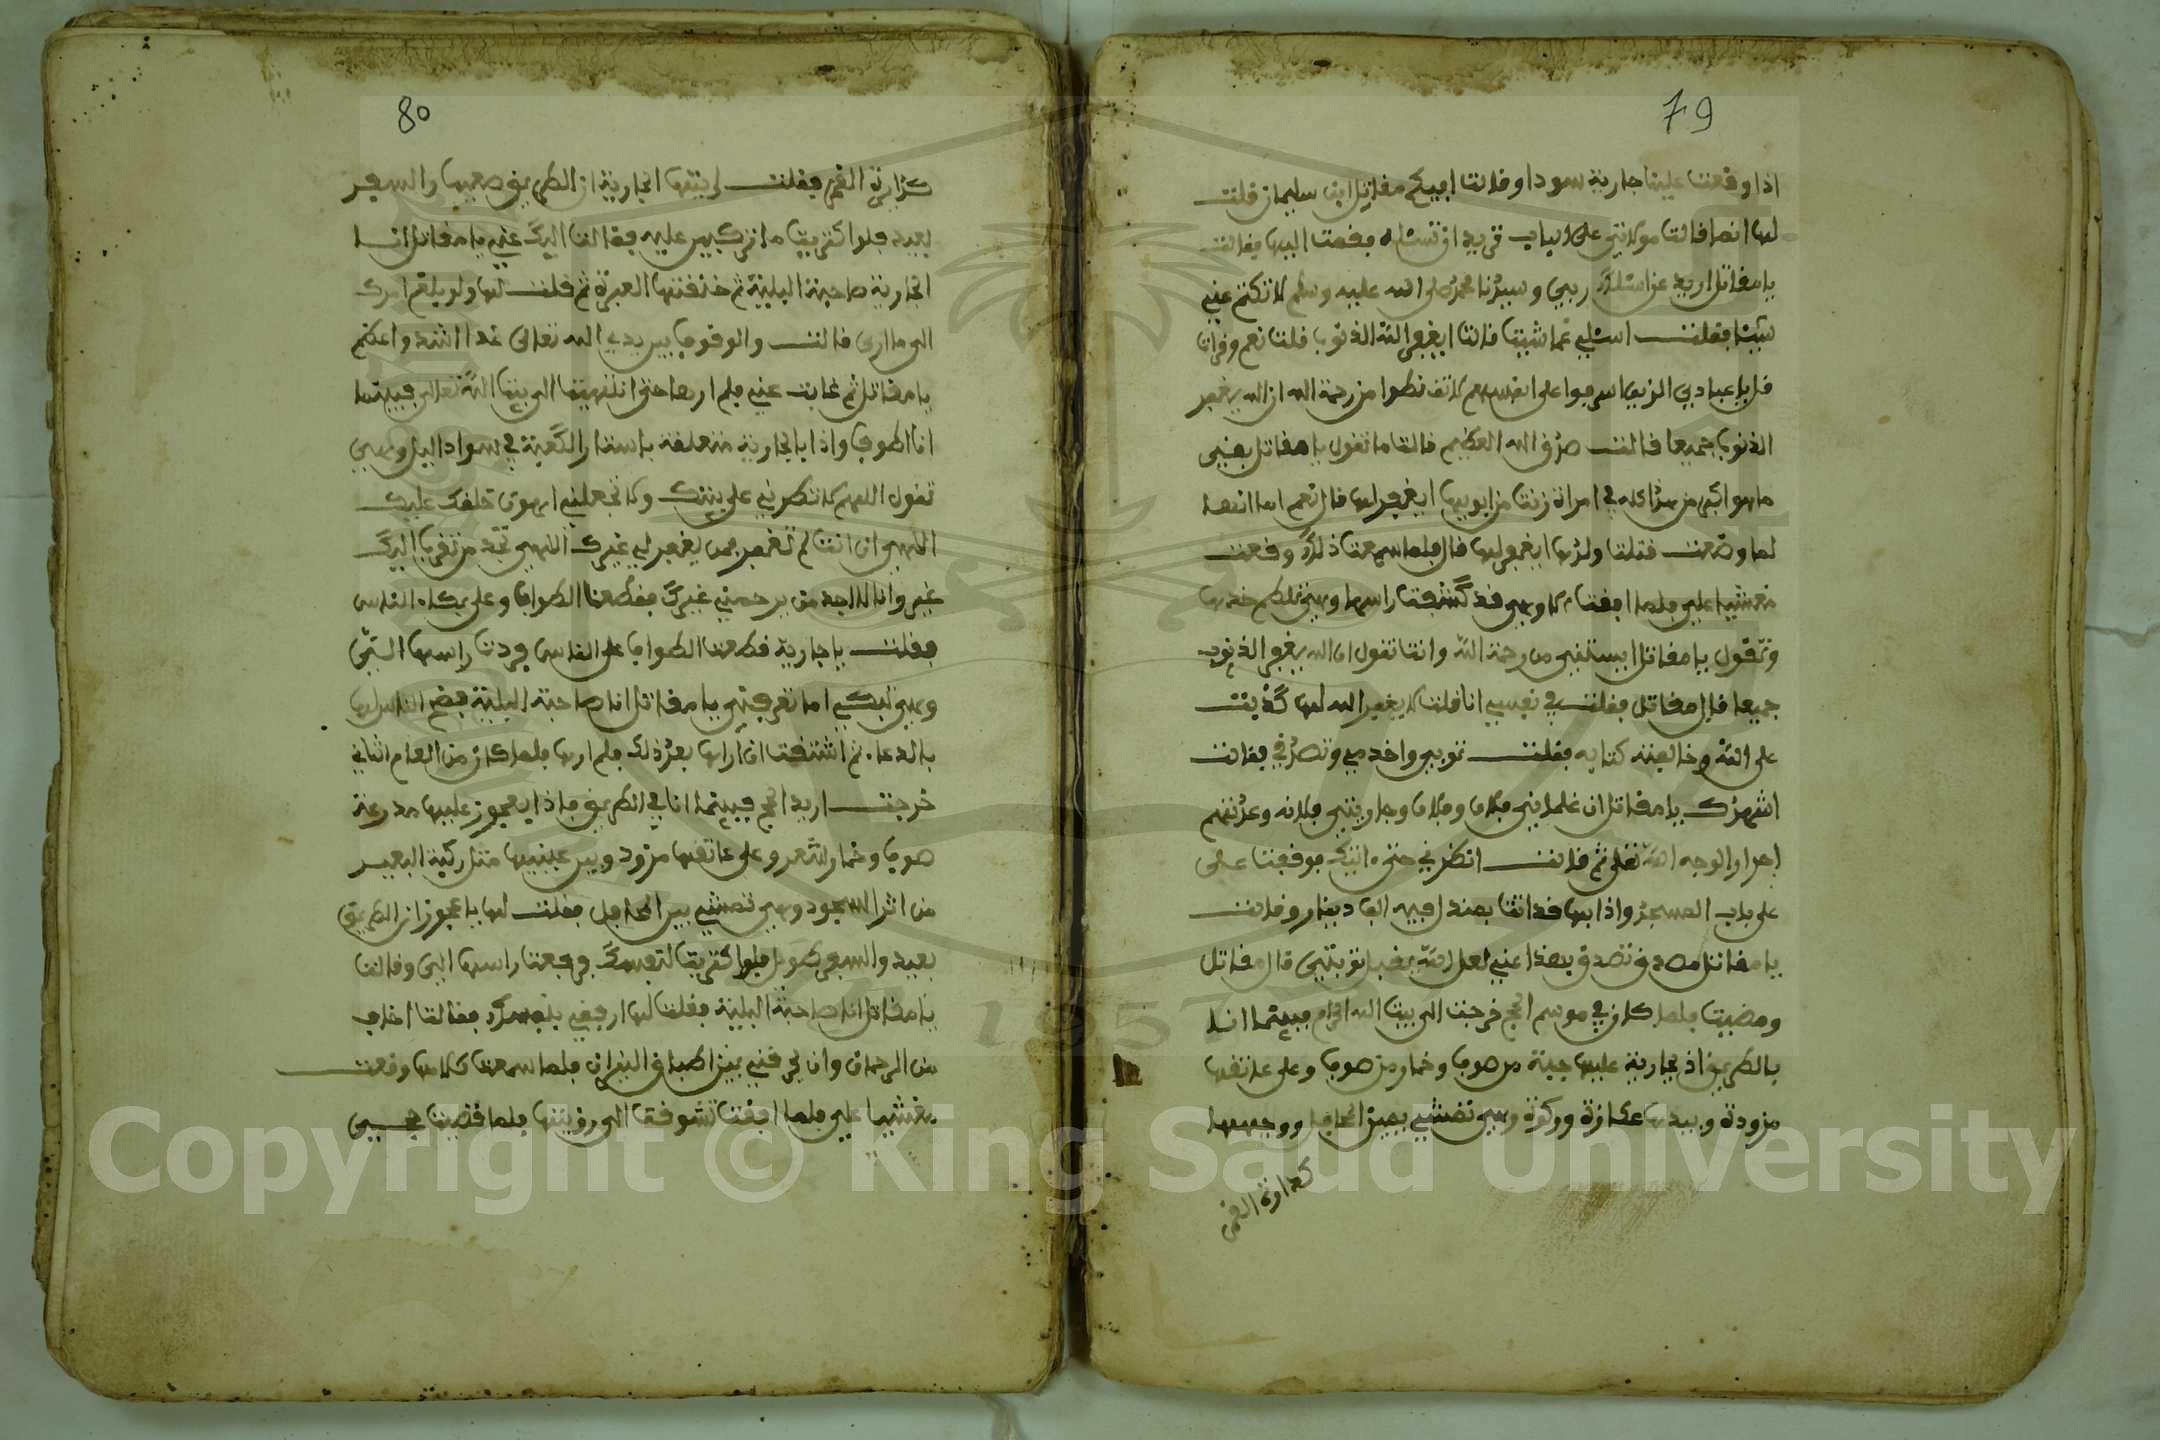 79
اذا وقعت علينا جارية سودا وقالت ايكم مقاتل ابن سليمان قلت
لها انا قالت مولاتي على الباب تريد ان تسئله فقمت اليها فقالت
يا مقاتل اريد عن اسئلك ربي وسيدنا محمد صلى الله عليه وسلم لا تكتم عني
شيئا فقلت اسئلي عما شئت قالت ايغفر الله الذنوب قلت نعم وقرات
قل يا عبادي الذين اسرفوا على انفسهم لا تقنطوا من رحمة الله ان الله يغفر
الذنوب جميعا قالت صدق الله العظيم قالت ما تقول يا مقاتل بشيء
ما هو اكبر من هذا كله في امراة زنت من ابويها ايغفر لها قال نعم اما انها
لما وضعت قتلت ولدها ايغفر لها قال فلما سمعت ذلك وقعت
مغشيا علي فلما افقت وهي قد كشفت راسها وهي تلطم خدها
وتقول يا مقاتل ايستني من رحمة الله وانت تقول ان الله يغفر الذنوب
جميعا قال مقاتل فقلت في نفسي انا قلت لا يغفر الله لها كذبت
على الله وخالفت كتابه فقلت توبي واخدمي وتصدقي فقالت
اشهدك يا مقاتل ان غلماني فلان وفلان وجاريتي فلانة وعدتهم
احرار لوجه الله تعلى ثم قالت انظرني حتى اتيك فوقفت على
على باب المسجد واذا بها قد اتت بمنديل فيه الف دينار وقالت
يا مقاتل تصدق بهذا عني لعل الله يقبل توبتي قال مقاتل
ومضيت فلما كان في موسم الحج خرجت الى بيت الله الحرام فبينما انا
بالطريق اذ بجارية عليها جبة من صوف وخمار من صوف وعلى عاتقها
مزودة وبيدها عكازة وركوة وهي تمشي بين المحافل ووجهها
كدارة القمر
80
كدارة القمر فقلت لها ايتها الجارية ان الطريق صعبها والسفر
بعيد فلو اكتريت ما تركبين عليه فقالت اليك عني يا مقاتل انا
الجارية صاحبة البلية ثم خنقتها العبرة ثم قلت لها ولو بلغ امرك
الى ما ارى قالت والوقوف بين يدي الله تعالى غدا اشد واعظم
يا مقاتل ثم غابت عني فلم ارها حتى انتهيت الى بيت الله تعالى فبينما
انا اطوف واذا بالجارية متعلقة باستار الكعبة في سواد اليل وهي
تقول اللهم لا تطردني على بيتك ولا تجعلني اهون خلقك عليك
الهي ان انت لم تغفر فمن يغفر لي غيرك الهي تجد من تقربا اليك
غير وانا لا اجد من يرحمني غيرك فقطعت الطواف وعلى بكاه الناس
فقلت يا جارية قطعت الطواف على الناس فردت راسها الي
وهي تبكي اما تعرفني يا مقاتل انا صاحبة البلية فضج الناس لها
بالدعا ثم اشتقت ان اراها بعد ذلك فلم ارها فلما كان من العام الثاني
خرجت اريد الحج فبينما انا في الطريق فاذا بعجوز عليها مدرعة
صوف وخمار الشعر وعلى عاتقها مزود وبين عينيها مثل ركبة البعير
من اثر السجود وهي تمشي بين المحافل فقلت لها يا عجوز ان الطريق
بعيد والسفر طويل فلو اكتريت لنفسك فرفعت راسها الي وقالت
يا مقاتل انا صاحبة البلية فقلت لها ارفقي بنفسك فقالت اخاف
من الرحمان وان يحرقني بين اطباق النيران فلما سمعت كلامها وقعت
مغشيا علي فلما افقت تشوقت الى رؤيتها فلما قضيت حجي
Copyright © King Saud University
1957